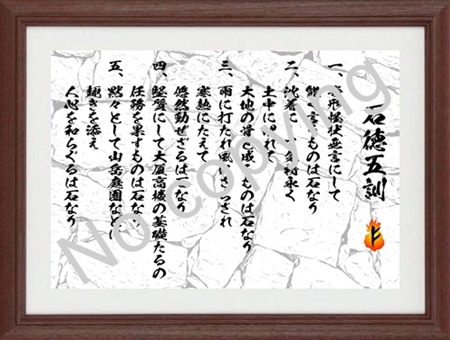 石徳五訓
一、奇形怪状無言にして
能く言うものは石なり
二、沈着にして永く
土中に埋れて
大地の骨と成るものは石なり
三、雨に打たれ風にさらされ
寒熱にたえて
悠然動ぜざるは石なり
四、堅質にして大厦高楼の基礎たるの
任務を果すものは石なり
五、黙々として山岳庭園などに
趣きを添え
人心を和らぐるは石なり
No copying